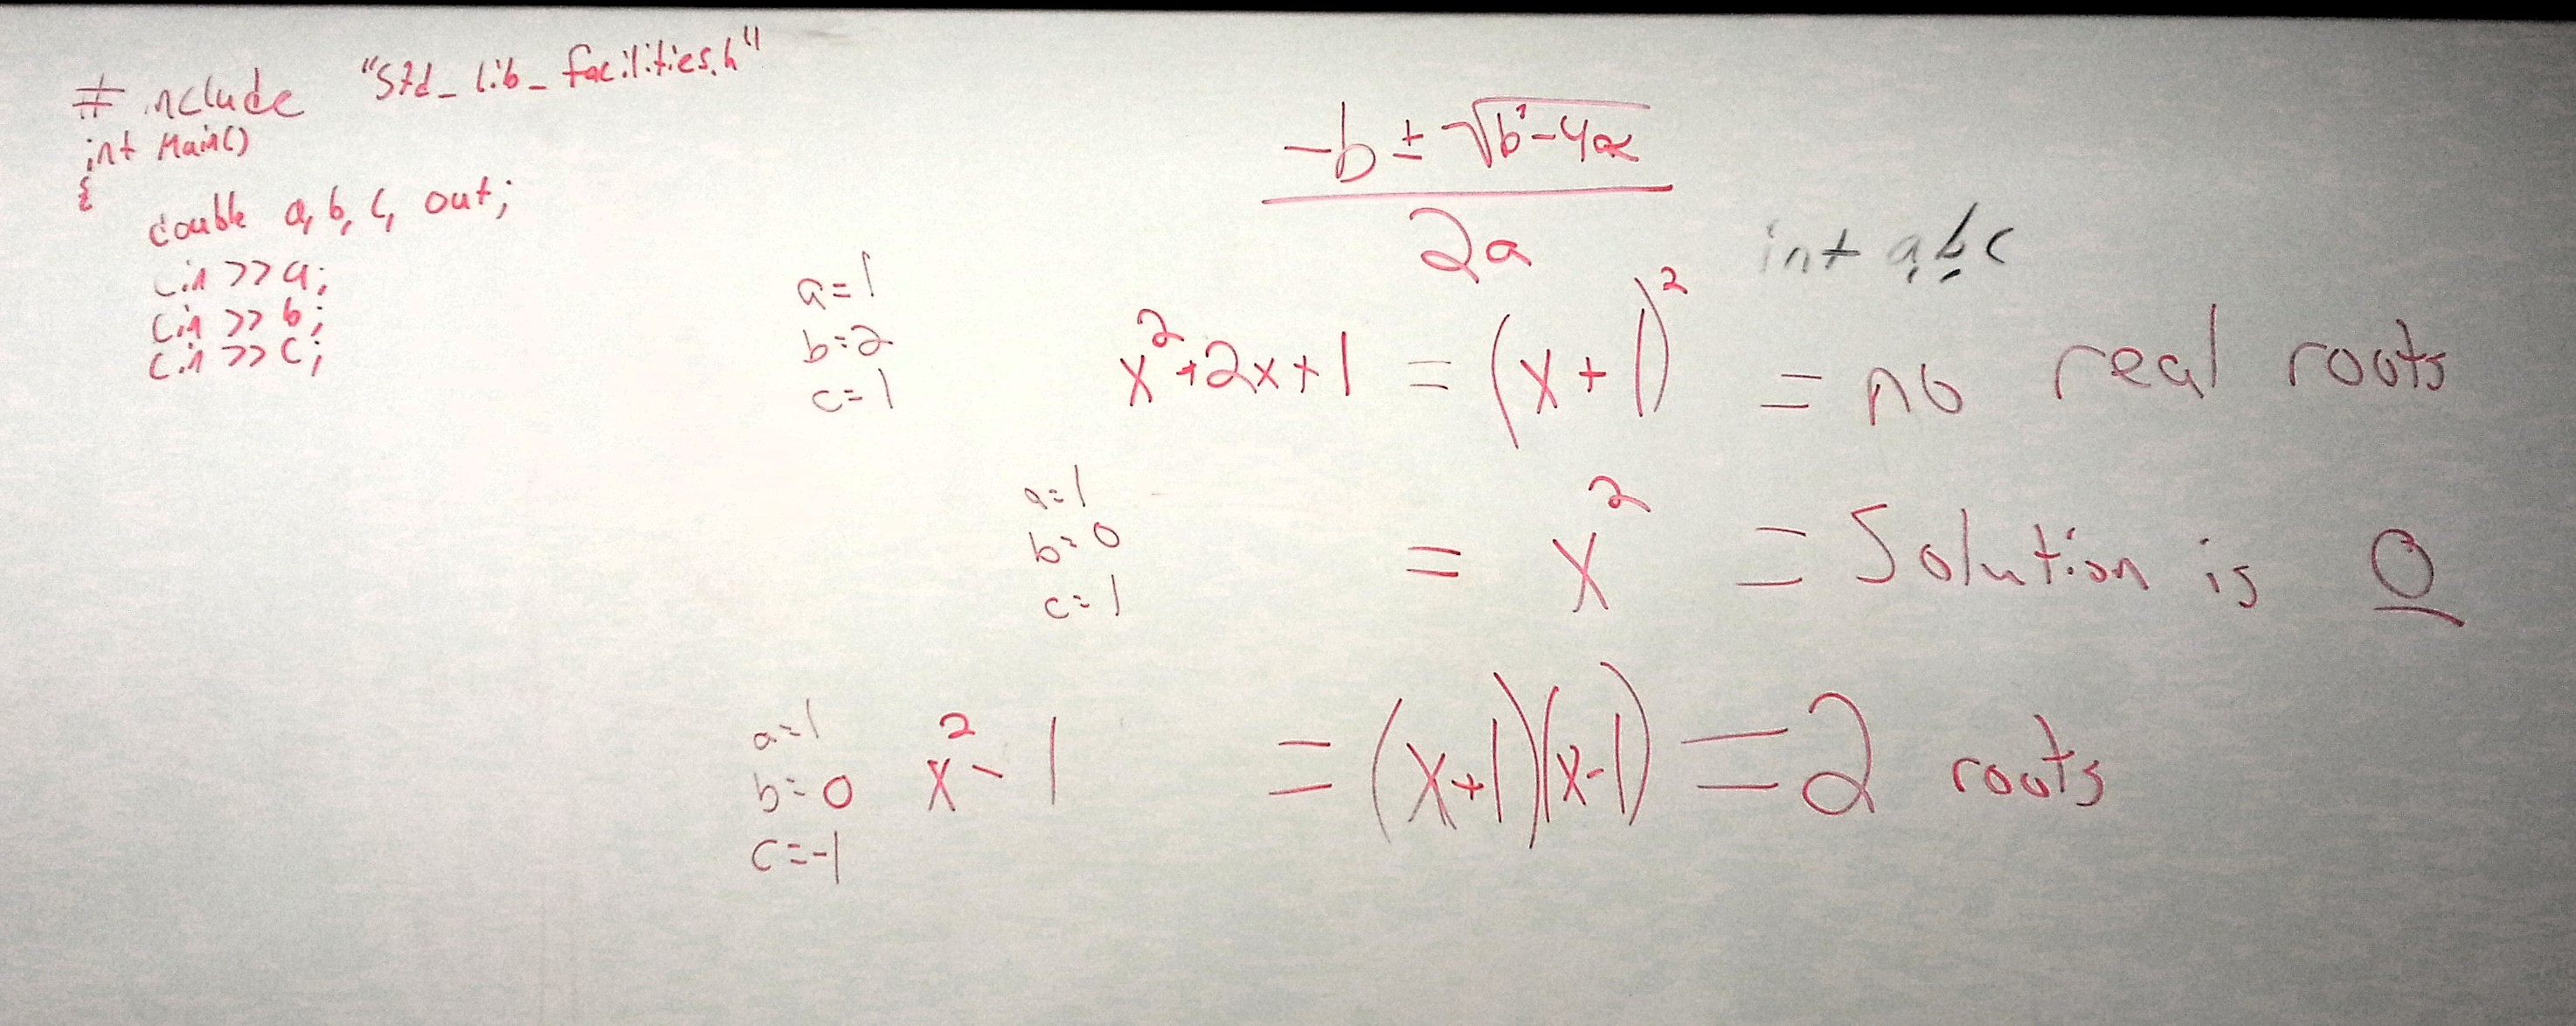 #include "Std_lib_facilities.h"
int Main()
{
double a, b, c, out;
cin >> a;
cin >> b;
cin >> c;
-b ± √b²-4ac
2a
int a, b, c
a=1
b=2
c=1
x²+2x+1 = (x+1)² = no real roots
a=1
b=0
c=1
= x² = Solution is 0
a=1
b=0
c=-1
x²-1 = (x+1)(x-1) = 2 roots